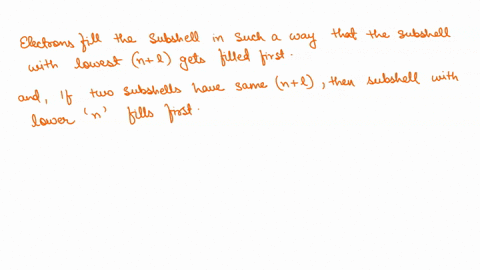 Electrons fill the subshell in such a way that the subshell
with lowest (n+l) gets filled first.
and, if two subshells have same (n+l), then subshell with
lower 'n' fills first.